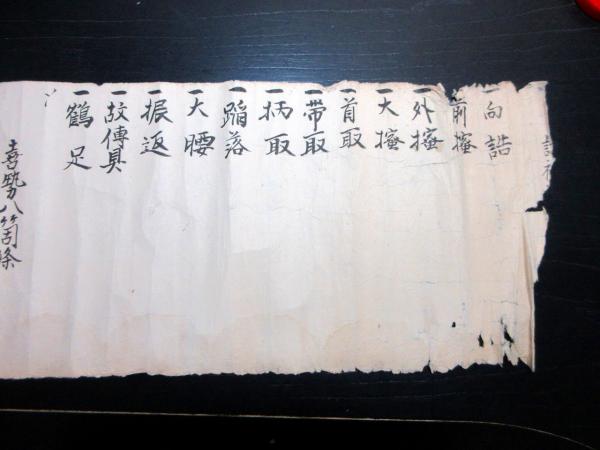 一向詰
一前搔
一外搔
一大搔
一首取
一帯取
一柄取
一蹈落
一大腰
一振返
一故傳具
一鶴足
喜勢八箇条